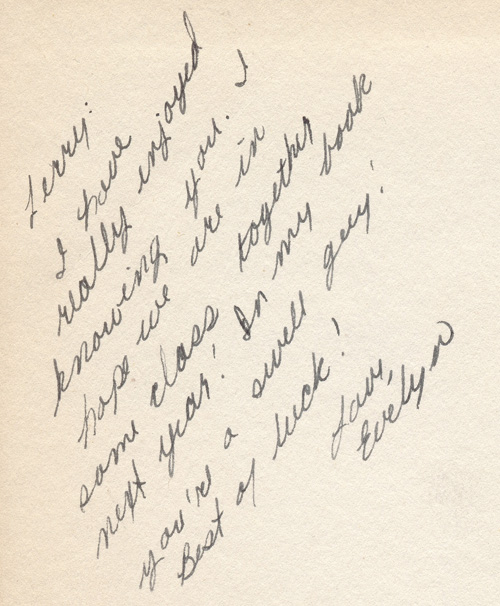 Terry:
I have
really injoyed
knowing you. I
hope we are in
some class together
next year! In my book
you're a swell guy!
Best of luck!
Love,
Evelyn